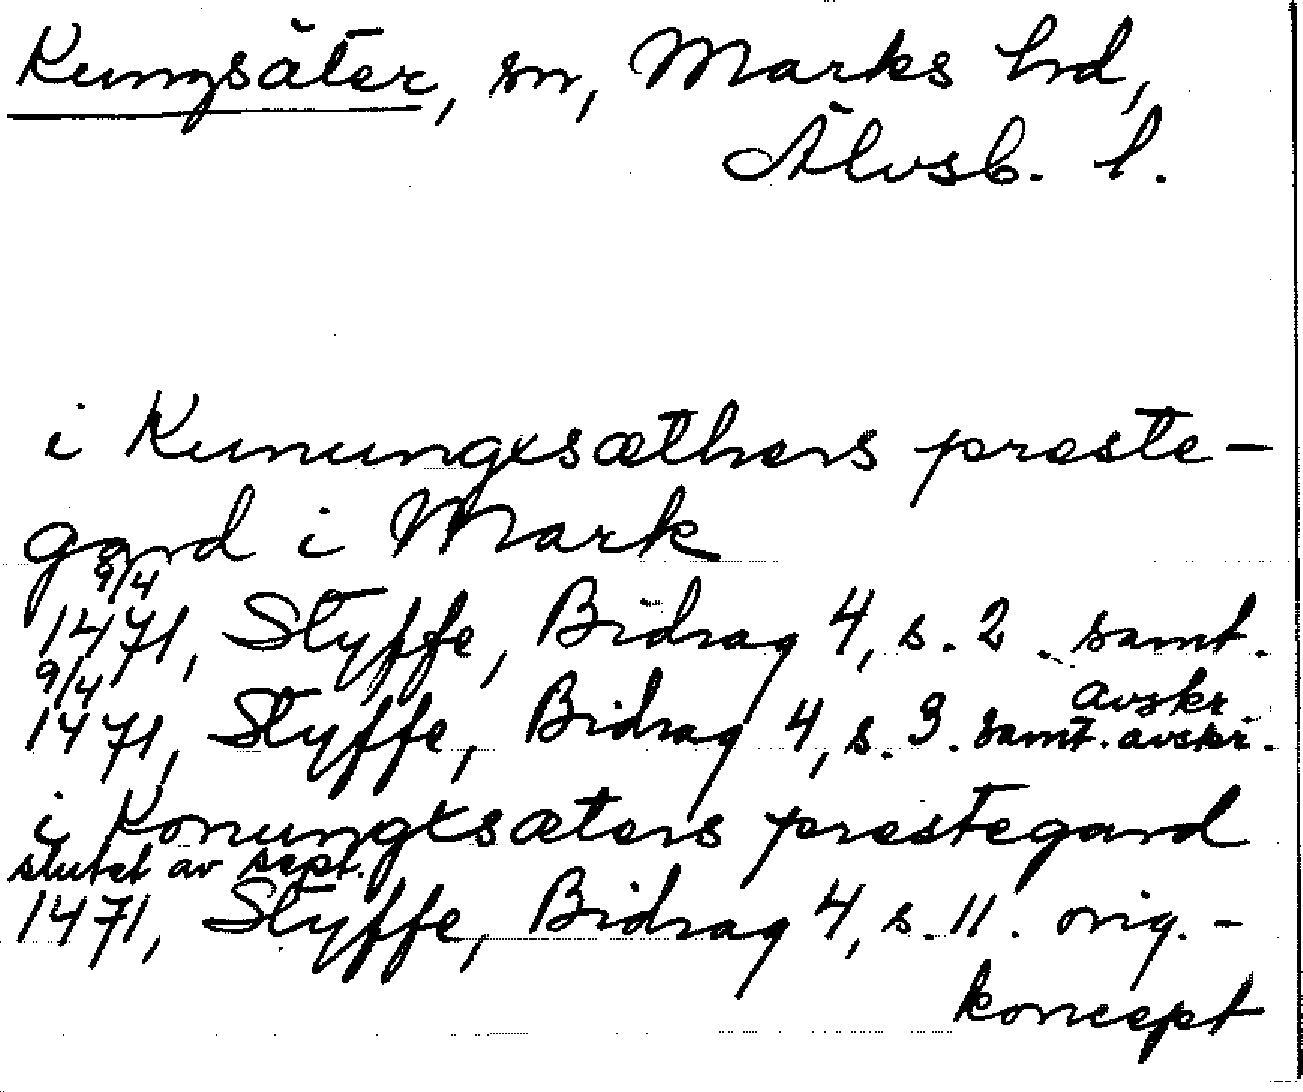 Kungsäter, sn, Marks hd,
Älvsb. l.
i Kunungxsæthers preste-
gard i Mark
9/4
1471, Styffe, Bidrag 4, s. 2. samt.
avskr.
9/4
1471, Styffe, Bidrag 4, s. 3. samt. avskr.
i Konungxsæters prestegard
slutet av sept.
1471, Styffe, Bidrag 4, s. 11. orig.-
koncept